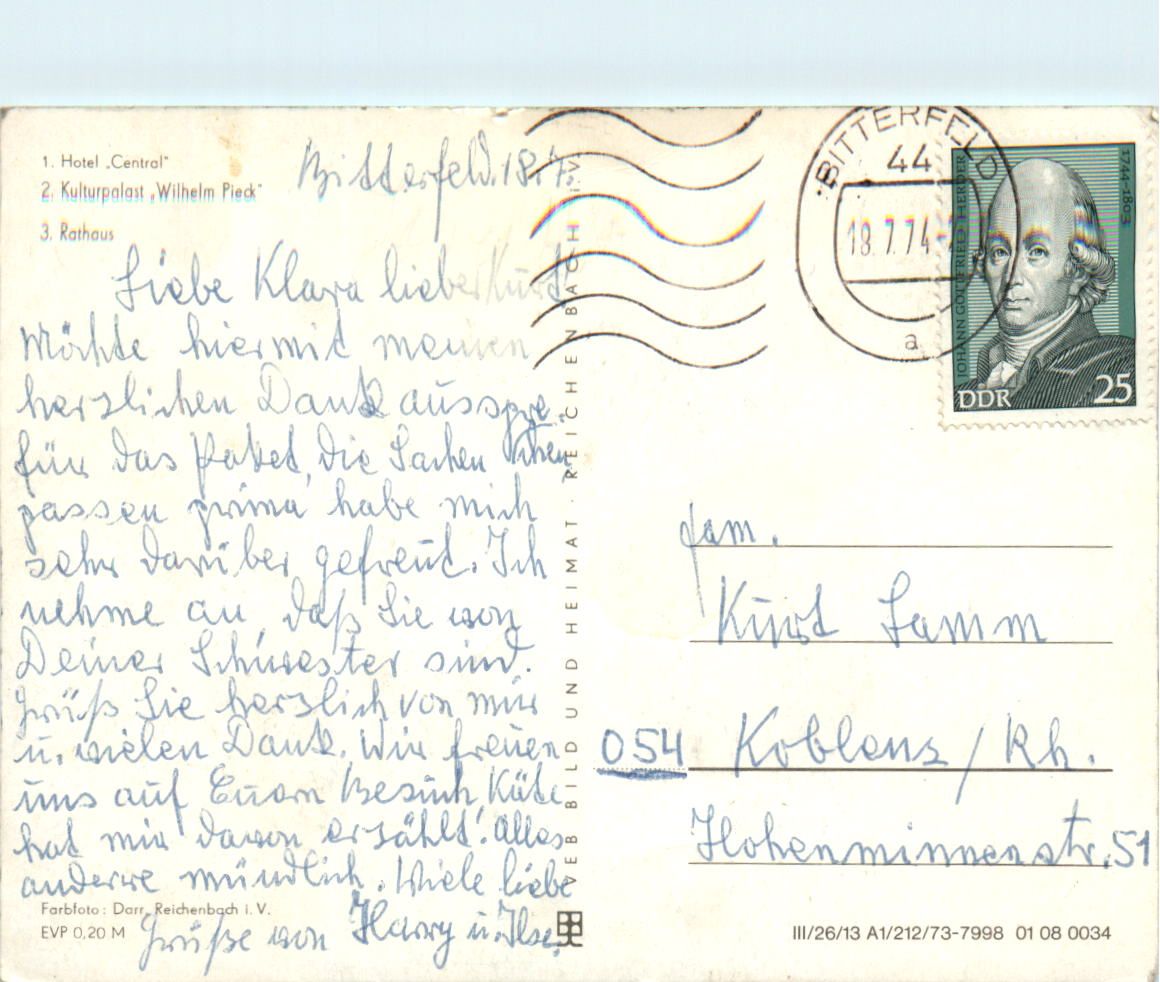 1. Hotel „Central"
2. Kulturpalast „Wilhelm Pieck"
3. Rathaus
Bitterfeld. 18.7.
Liebe Klara lieber Kurt
Möchte hiermit meinen
herzlichen Dank ausspre-
chen
für das Paket, die Sachen
passen prima, habe mich
sehr darüber gefreut. Ich
nehme an, daß Sie von
Deiner Schwester sind.
Grüß Sie herzlich von mir
u. vielen Dank. Wir freuen
uns auf Euern Besuch, Käte
hat mir davon erzählt! Alles
andere mündlich. Viele liebe
Grüße von Harry u. Ilse.
Farbfoto: Darr, Reichenbach i. V.
EVP 0,20 M
VEB BILD UND HEIMAT · REICHENBACH i. V.
BITTERFELD
44
18.7.74
a
JOHANN GOTTFRIED HERDER
1744-1803
DDR
25
Fam.
Kurt Lamm
054 Koblenz / Rh.
Hohenminnenstr. 51
III/26/13 A1/212/73-7998 01 08 0034